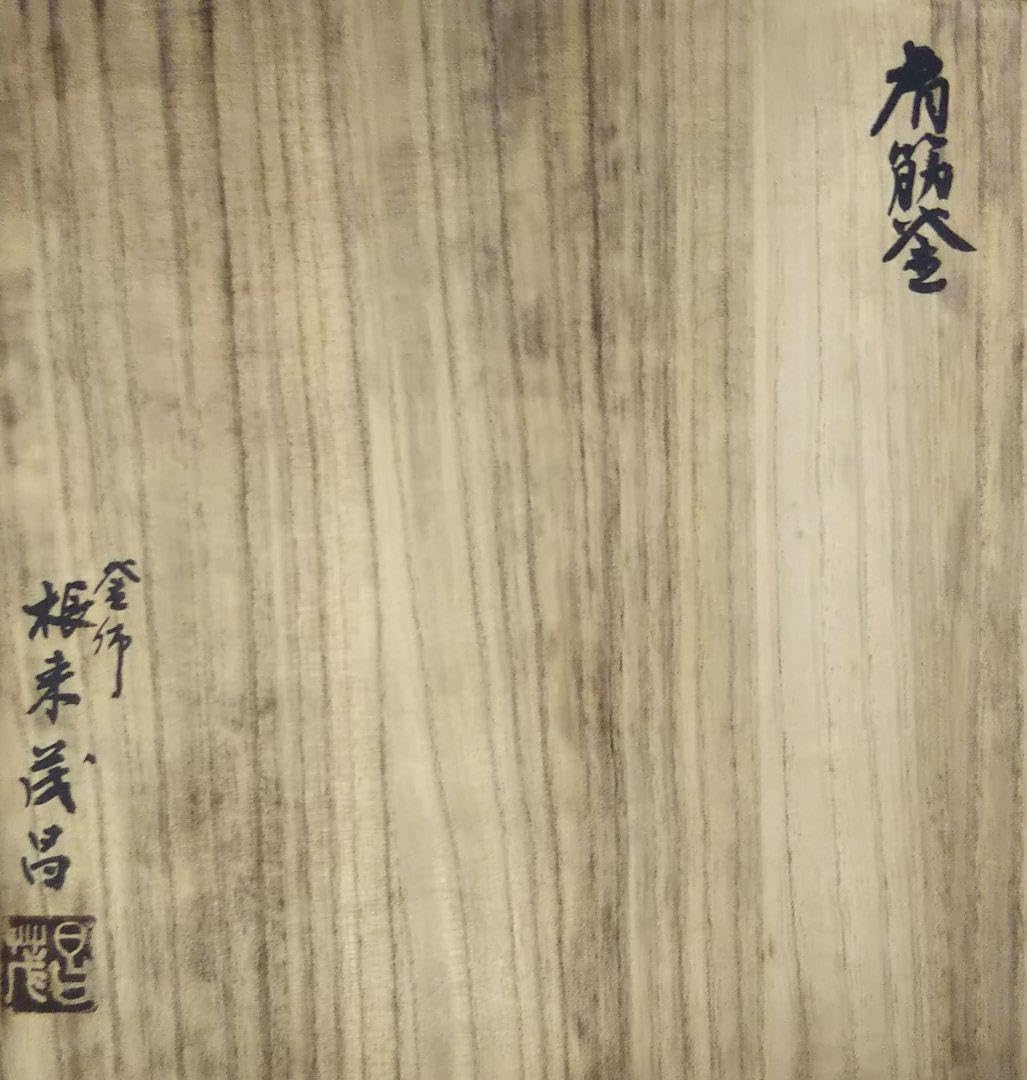 肩筋釜
釜師
根来茂昌